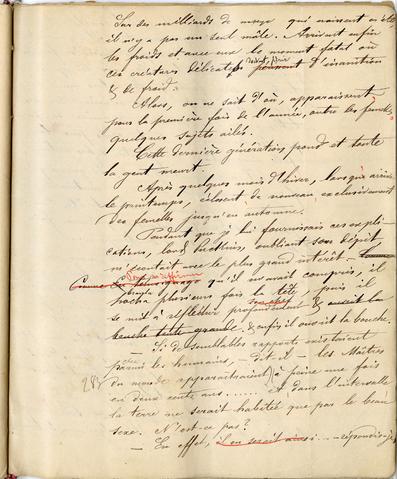 Sur des milliards de qui naissent en été
il n'y a pas un seul mâle. Arrivent enfin
les froids et avec eux le moment fatal où
ces créatures délicates doivent périr d'inanition
& de froid.
Alors, on ne sait d'où, apparaissent
pour la première fois de l'année, outre les femelles
quelques sujets ailés.
Cette dernière génération pond et toute
la gent meurt.
Après quelques mois d'hiver, lorsqu'arrive
le printemps, éclosent de nouveau exclusivement
des femelles jusqu'en automne.
Pendant que je lui fournissais ces expli-
cations, lord oubliant son dépit
m'écoutait avec le plus grand intérêt
Comme qu'il m'avait compris, il
hocha plusieurs fois la tête, puis il
se mit à réfléchir profondément & ouvrit la
bouche toute grande. & enfin il ouvrit la bouche.
— Si de semblables rapports existaient
chez
parmi les humains, — dit-il — les Maîtres
283 du monde apparaîtraient à peine une fois
en deux cents ans...... et dans l'intervalle
la terre ne serait habitée que par le beau
sexe. N'est-ce pas?
— En effet, il en serait ainsi... — répondis-je